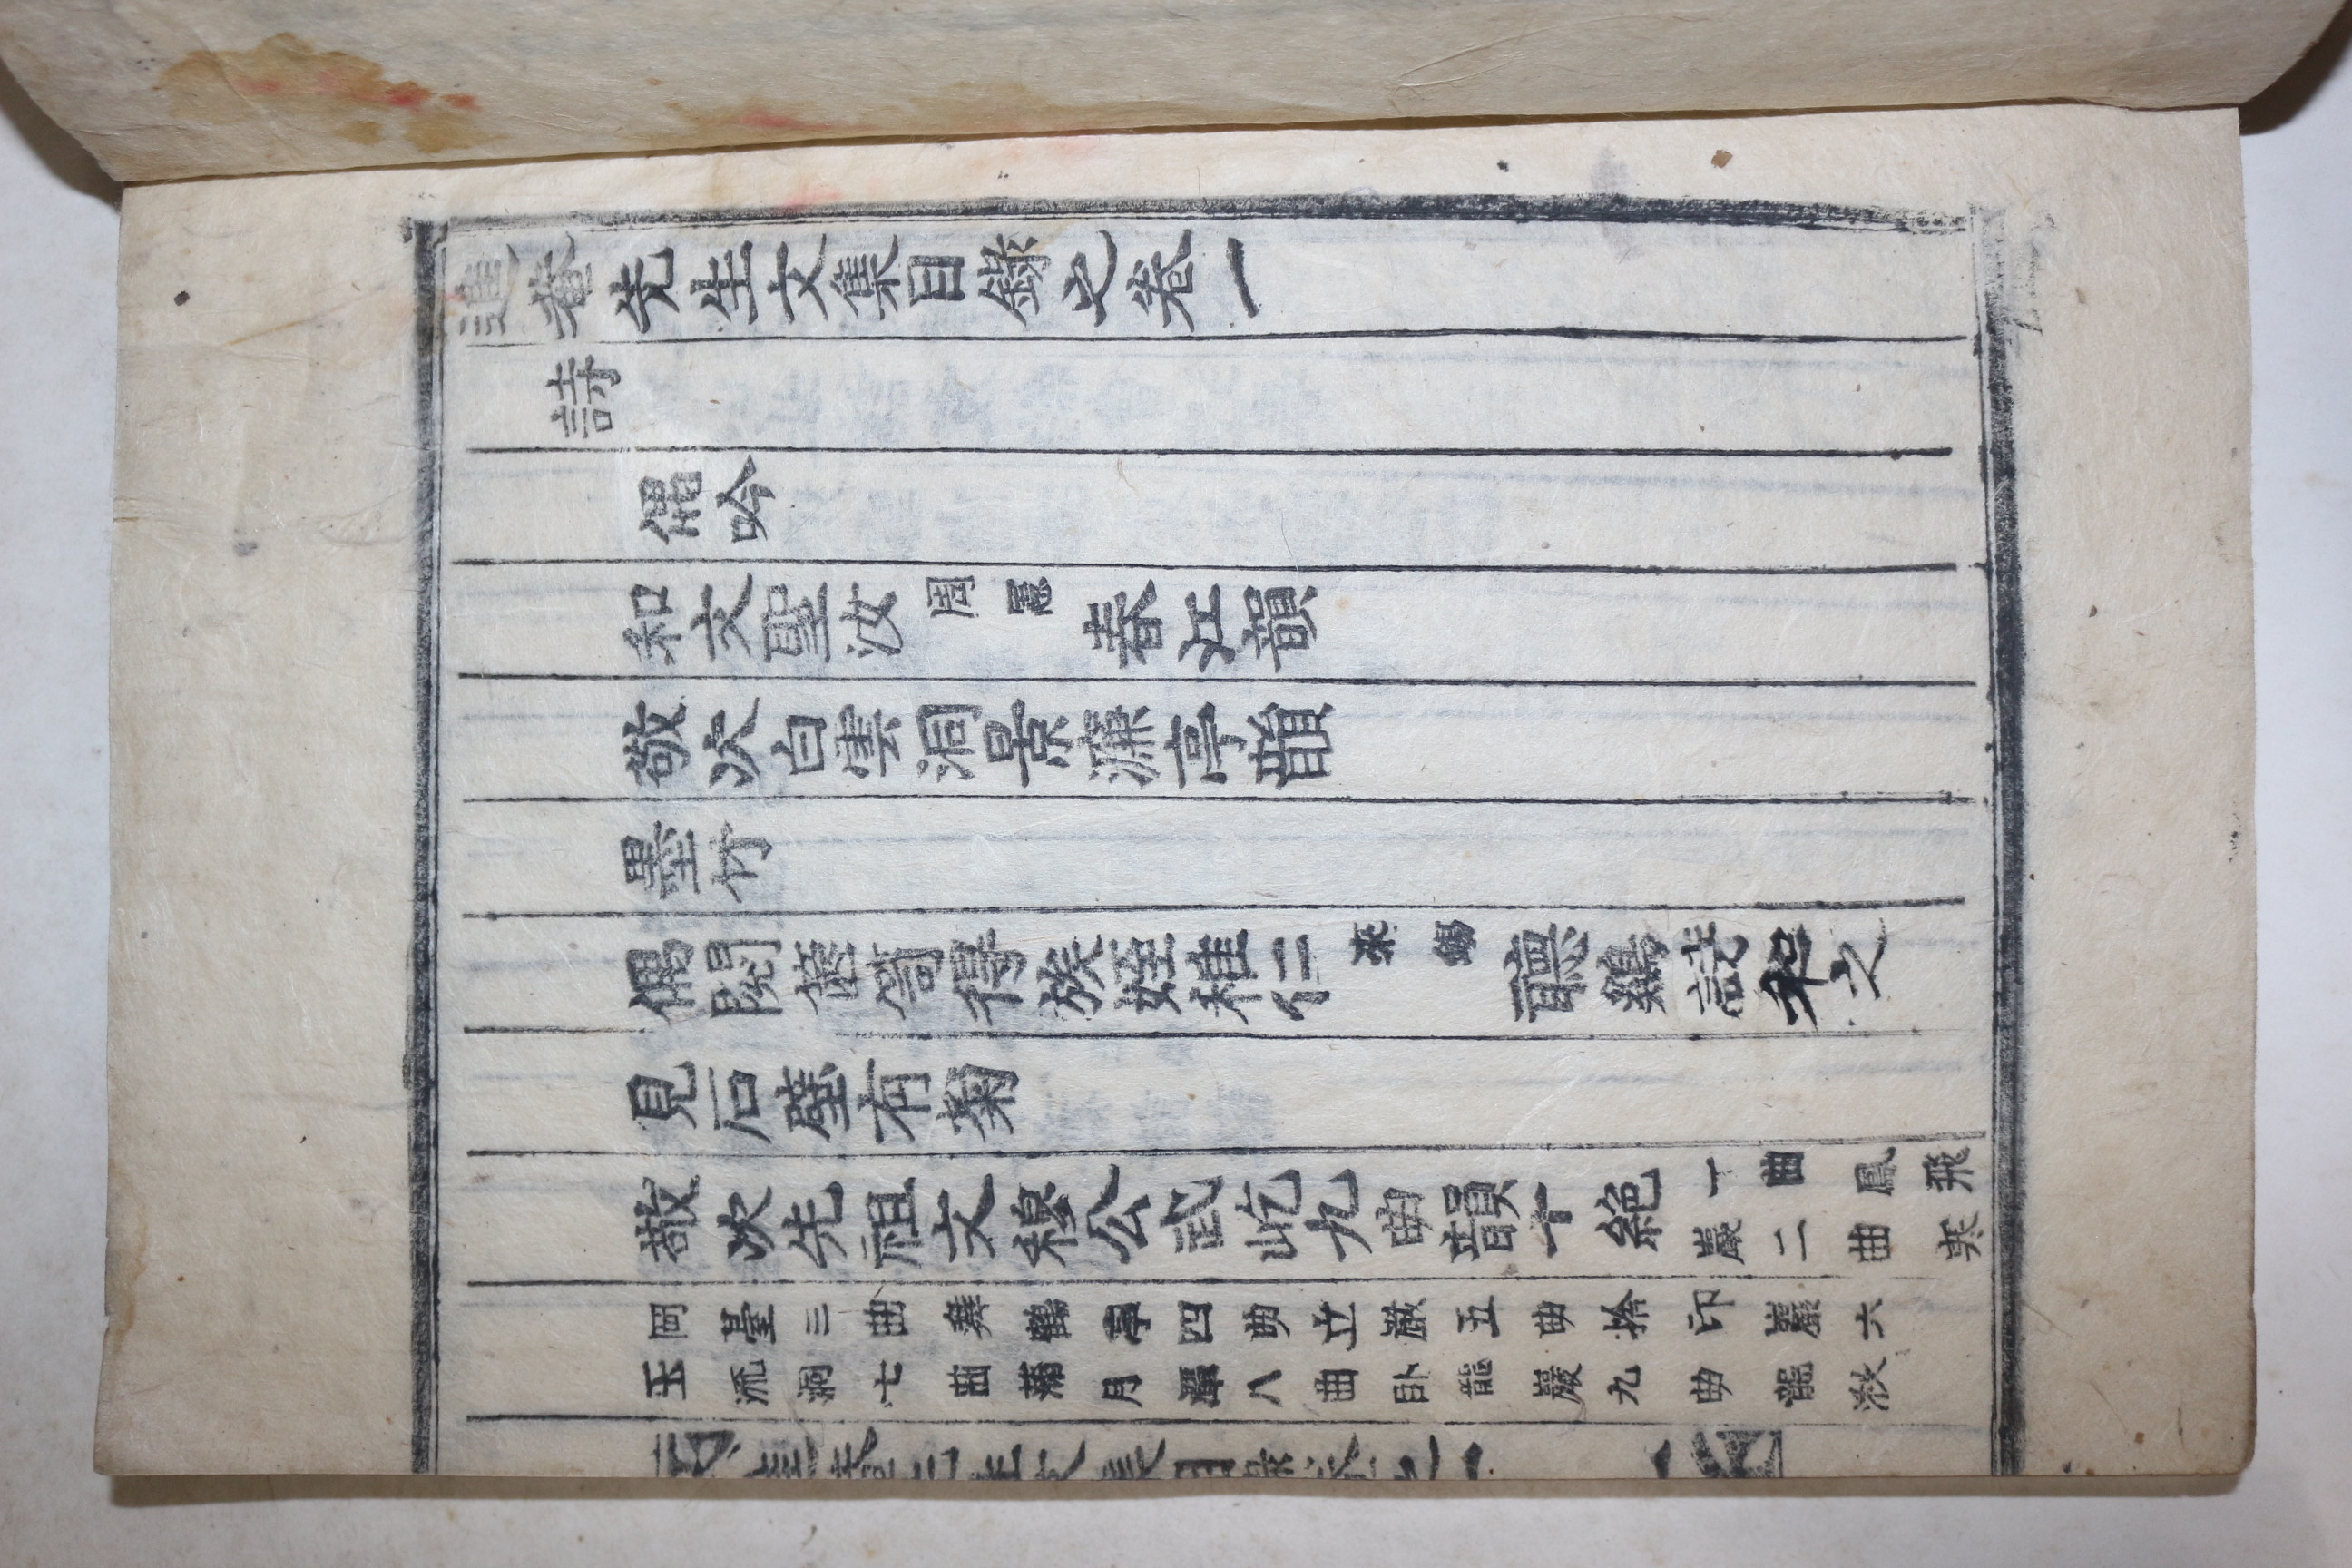 進菴先生文集目錄之卷一
詩
偶吟
和文聖汝周惪春江韻
敬次白雲洞景濂亭韻
墨竹
偶閱篋笥得族姪稚仁來錫聽鷄詩和之
見石壁有菊
敬次先祖文穆公武屹九曲韻十絶一曲鳳飛
巖二曲寒
岡臺三曲舞鶴亭四曲立巖五曲捨印巖六
玉流洞七曲蒲月潭八曲臥龍巖九曲龍湫